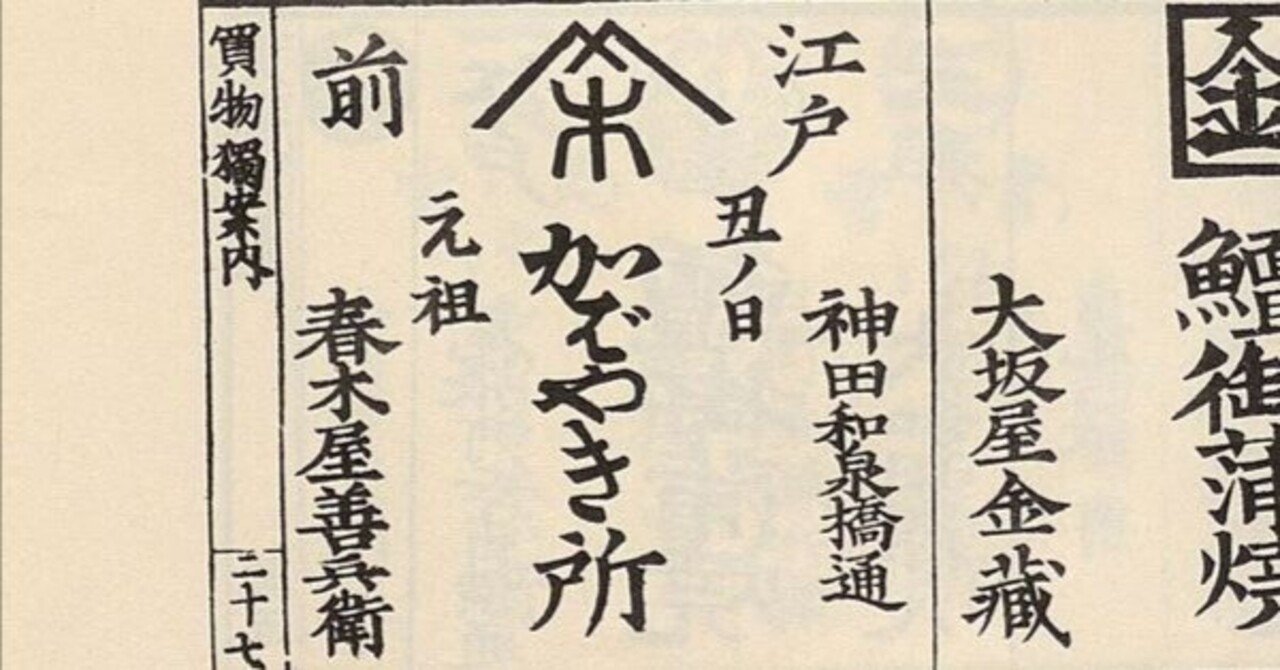 金
鱣御蒲燒
大坂屋金藏
江戸
神田和泉橋通
丑ノ日
かばやき所
元祖
前
春木屋善兵衛
買物獨案内
二十七